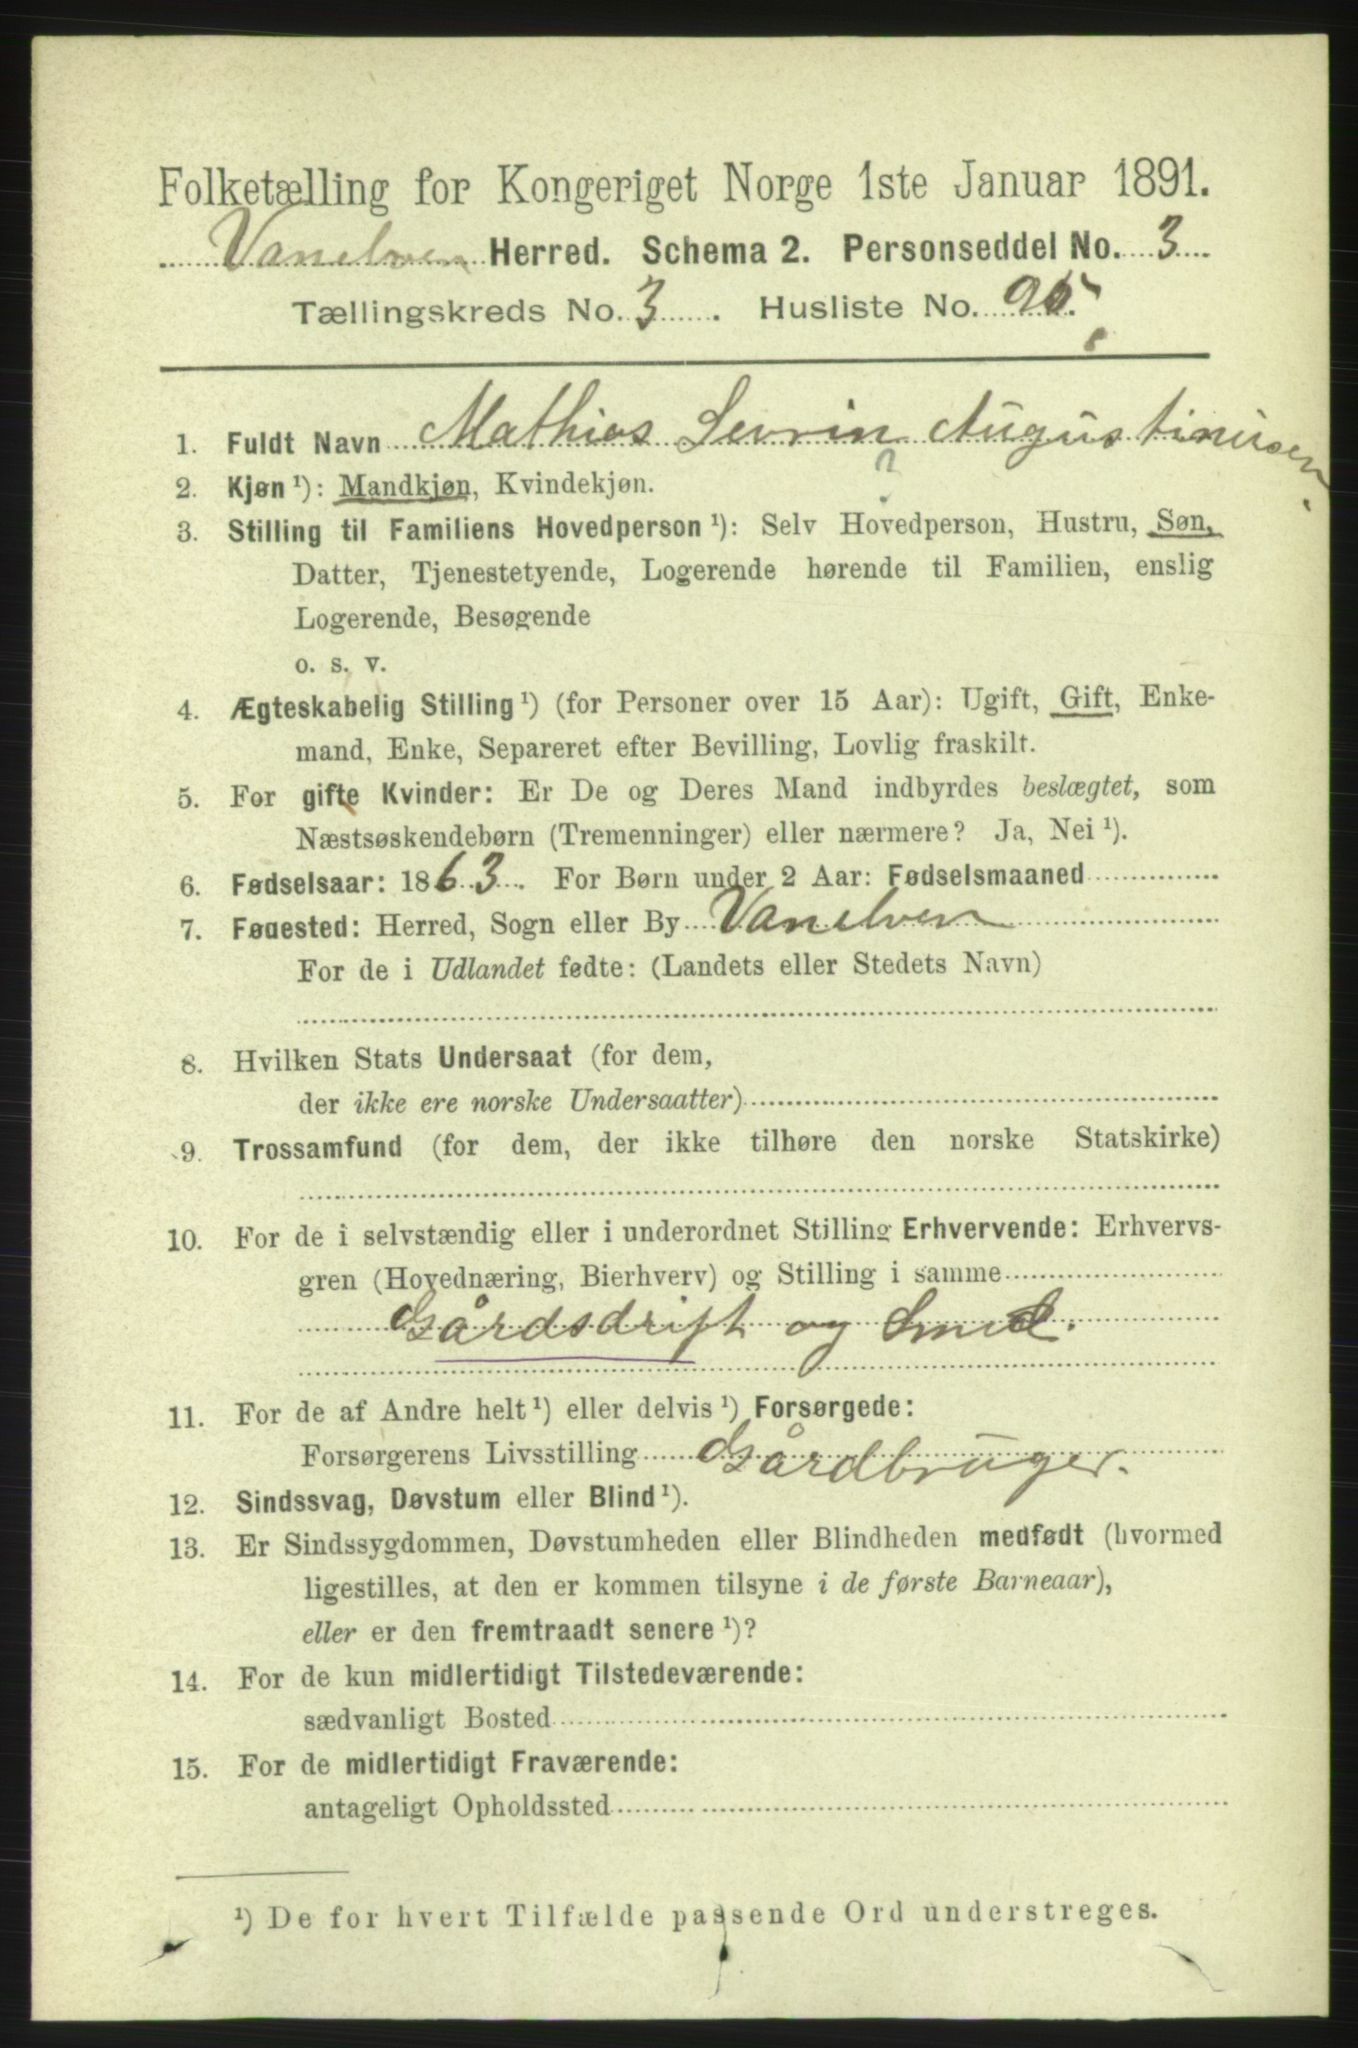 Folketælling for Kongeriget Norge 1ste Januar 1891.
Vanelven Herred. Schema 2. Personseddel No. 3
Tællingskreds No. 3. Husliste No. 95.
1. Fuldt Navn Mathias Sevrin Augustinusen
2. Kjøn ¹): Mandkjøn, Kvindekjøn.
?
3. Stilling til Familiens Hovedperson ¹): Selv Hovedperson, Hustru, Søn,
Datter, Tjenestetyende, Logerende hørende til Familien, enslig
Logerende, Besøgende
o. s. v.
4. Ægteskabelig Stilling ¹) (for Personer over 15 Aar): Ugift, Gift, Enke-
mand, Enke, Separeret efter Bevilling, Lovlig fraskilt.
5. For gifte Kvinder: Er De og Deres Mand indbyrdes beslægtet, som
Næstsøskendebørn (Tremenninger) eller nærmere? Ja, Nei ¹).
6. Fødselsaar: 1863. For Børn under 2 Aar: Fødselsmaaned
7. Fødested: Herred, Sogn eller By Vanelven
For de i Udlandet fødte: (Landets eller Stedets Navn)
8. Hvilken Stats Undersaat (for dem,
der ikke ere norske Undersaatter)
9. Trossamfund (for dem, der ikke tilhøre den norske Statskirke)
10. For de i selvstændig eller i underordnet Stilling Erhvervende: Erhvervs-
gren (Hovednæring, Bierhverv) og Stilling i samme
Gårdsdrift og Smed.
11. For de af Andre helt ¹) eller delvis ¹) Forsørgede:
Forsørgerens Livsstilling Gårdbruger.
12. Sindssvag, Døvstum eller Blind ¹).
13. Er Sindssygdommen, Døvstumheden eller Blindheden medfødt (hvormed
ligestilles, at den er kommen tilsyne i de første Barneaar),
eller er den fremtraadt senere ¹)?
14. For de kun midlertidigt Tilstedeværende:
sædvanligt Bosted
15. For de midlertidigt Fraværende:
antageligt Opholdssted
¹) De for hvert Tilfælde passende Ord understreges.